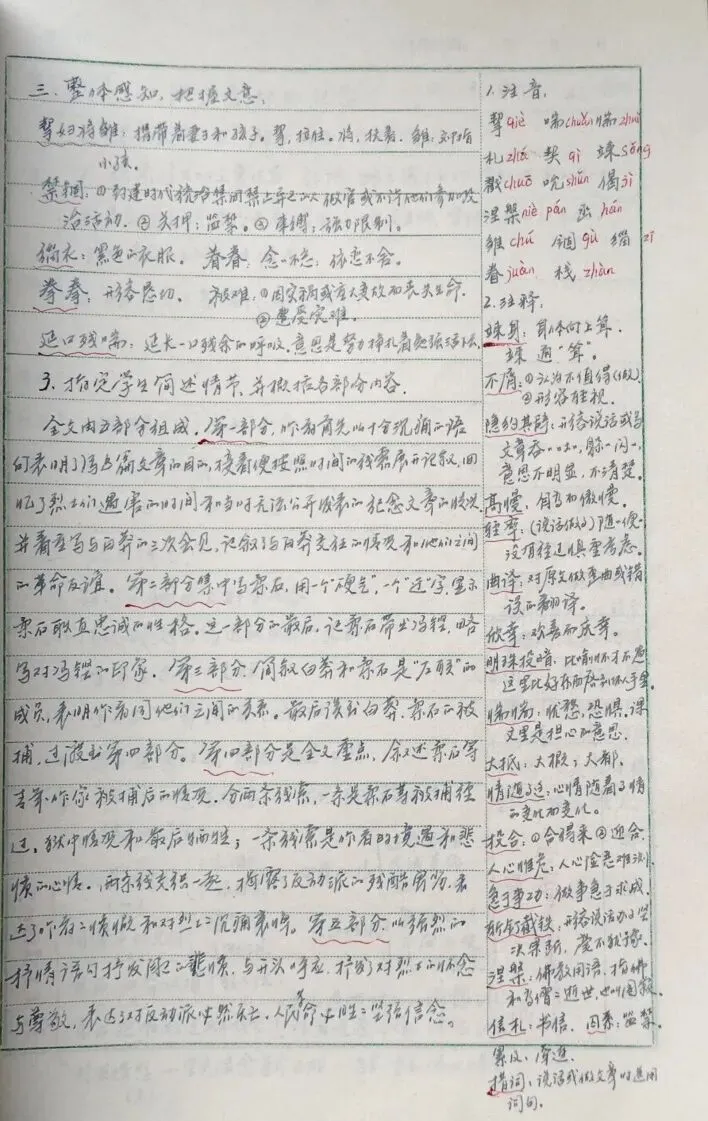 三、整体感知,把握文意。
挈妇将雏:携带着妻子和孩子。挈,拉住。将,扶着。雏:文中指
小孩。
禁锢:①封建时代统治集团禁止异己的人做官或不许他们参加政
治活动。②关押;监禁。③束缚;强力限制。
缁衣:黑色的衣服。眷眷:念念不忘;依恋不舍。
拳拳:形容恳切。被难:①因灾祸或重大变故而丧失生命.
②遭受灾难.
延口残喘:延长一口残余的呼吸。意思是努力挣扎着勉强活下去.
3.指定学生简述情节,并概括各部分内容.
全文由五部分组成。第一部分,作者首先以十分沉痛的语
句表明了写这篇文章的目的,接着便按照时间的线索展开记叙,回
忆了烈士们遇害的时间和当时无法公开发表的纪念文章的情况.
并着重写与白莽的三次会见,记叙了与白莽交往的情况和他们之间
的革命友谊。第二部分集中写柔石,用一个"硬气",一个"迂"字,显示
柔石耿直忠诚的性格。这一部分的最后,记柔石带出冯铿,略
写对冯铿的印象。第三部分,简叙白莽和柔石是"左联"的
成员,表明作者同他们之间的关系。最后谈到白莽、柔石的被
捕,过渡到第四部分。第四部分是全文重点,叙述柔石等
青年作家被捕后的情况。分两条线索,一条是柔石等被捕经
过,狱中情况和最后牺牲;一条线索是作者的境遇和悲
愤的心情。两条线交织一起,揭露了反动派的残酷
达了作者的愤慨和对烈士的沉痛哀悼。第五部分,以强烈的
抒情语句抒发的悲愤,与开头呼应,抒发了对烈士的怀念
与尊敬,表达了对反动派必然灭亡,人民革命必胜的坚强信念。
1.注音.
挈qiè 喘chuǎn 惴zhuì
札zhá 契qì 竦sǒng
戳chuō 吮shǔn 偈jì
涅槃niè pán 函hán
雏chú 锢gù 缁zī
眷juàn 栈zhàn
2.注释.
竦身:身体向上耸.
竦通"耸"。
不屑:①认为不值得(做)
②形容轻视.
隐约其辞:形容说话或写
文章吞吞吐吐,躲躲闪闪,
意思不明显,不清楚.
高慢,自高和傲慢.
轻率:(说话做事)随随便便
没有经过慎重考虑.
曲译:对原文做歪曲或错
误的翻译。
欣幸:欢喜而庆幸。
明珠投暗:比喻怀才不遇
这里比好东西落到坏人手里.
惴惴:忧愁,恐惧.课
文里是担心的意思.
大抵:大概;大都.
情随事迁:心情随着事情
的变化而变化。
投合:①合得来②迎合
人心惟危:人心险恶难测
急于事功:做事急于求成.
斩钉截铁:形容说话办事坚
决果断,毫不犹豫.
涅槃:佛教用语,指佛
和高僧的逝世,也叫圆寂.
信札:书信. 囚系:监禁.
累及,牵连.
措词:说话或做文章时选用
词句.